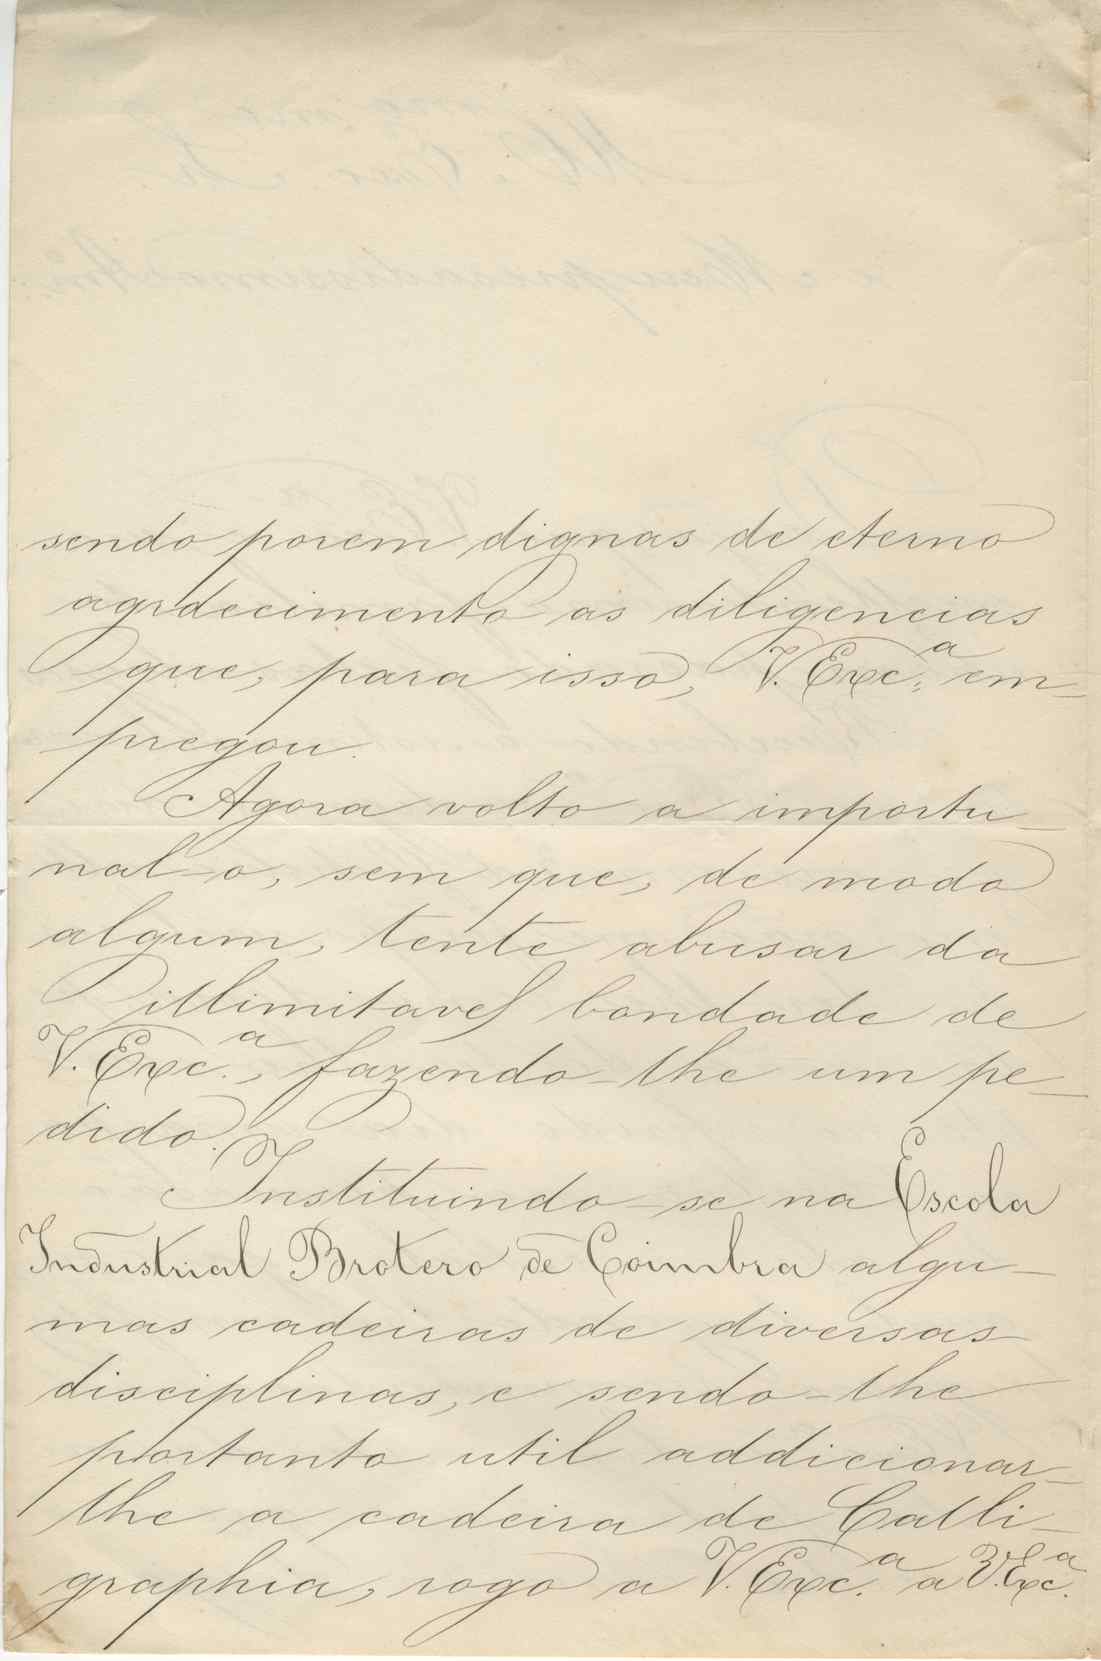 sendo porem dignas de eterno
agrdecimento as diligencias
que, para isso, V. Exc.ª em-
pregou.
Agora volto a importu-
nal-o, sem que, de modo
algum, tente abusar da
illimitavel bondade de
V. Exc.ª, fazendo-lhe um pe-
dido.
Instituindo-se na Escola
Industrial Brotero de Coimbra algu-
mas cadeiras de diversas
disciplinas, e sendo-lhe
portanto util addicionar-
lhe a cadeira de Calli-
graphia, rogo a V. Exc.ª a V. Exc.ª